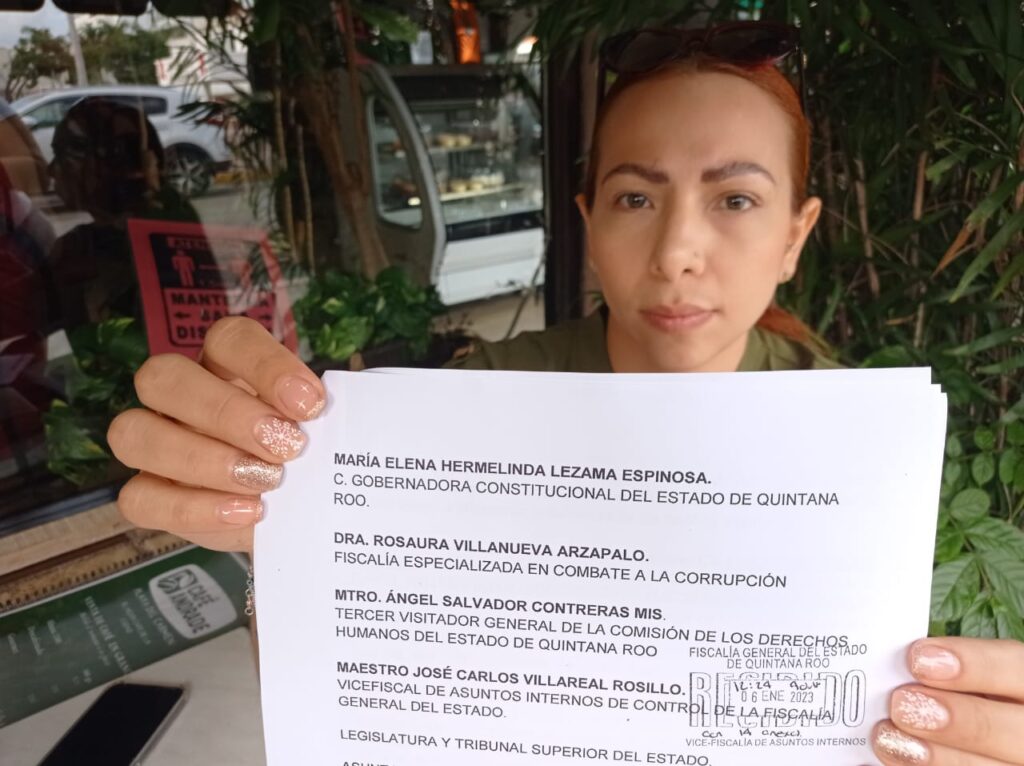 MANTE
DIS
CAFÉ
ANDRADE
MARÍA ELENA HERMELINDA LEZAMA ESPINOSA.
C. GOBERNADORA CONSTITUCIONAL DEL ESTADO DE QUINTANA
ROO.
DRA. ROSAURA VILLANUEVA ARZAPALO.
FISCALÍA ESPECIALIZADA EN COMBATE A LA CORRUPCIÓN
MTRO. ÁNGEL SALVADOR CONTRERAS MIS.
TERCER VISITADOR GENERAL DE LA COMISIÓN DE LOS DERECHOS
HUMANOS DEL ESTADO DE QUINTANA ROO
MAESTRO JOSÉ CARLOS VILLAREAL ROSILLO.
VICEFISCAL DE ASUNTOS INTERNOS DE CONTROL DE LA FISCALÍA
GENERAL DEL ESTADO.
LEGISLATURA Y TRIBUNAL SUPERIOR DEL ESTADO.
FISCALÍA GENERAL DEL ESTADO
DE QUINTANA ROO
RECIBIDO
06 ENE 2023
VICE-FISCALÍA DE ASUNTOS INTERNOS